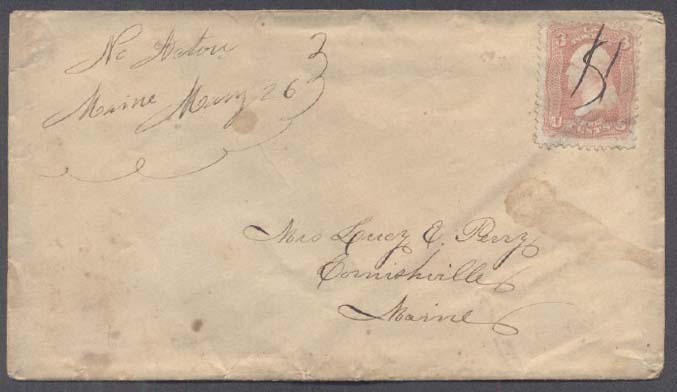 No
Maine May 26
3
U S
CENTS
Mrs Lucy E. Perry
Cornishville
Maine